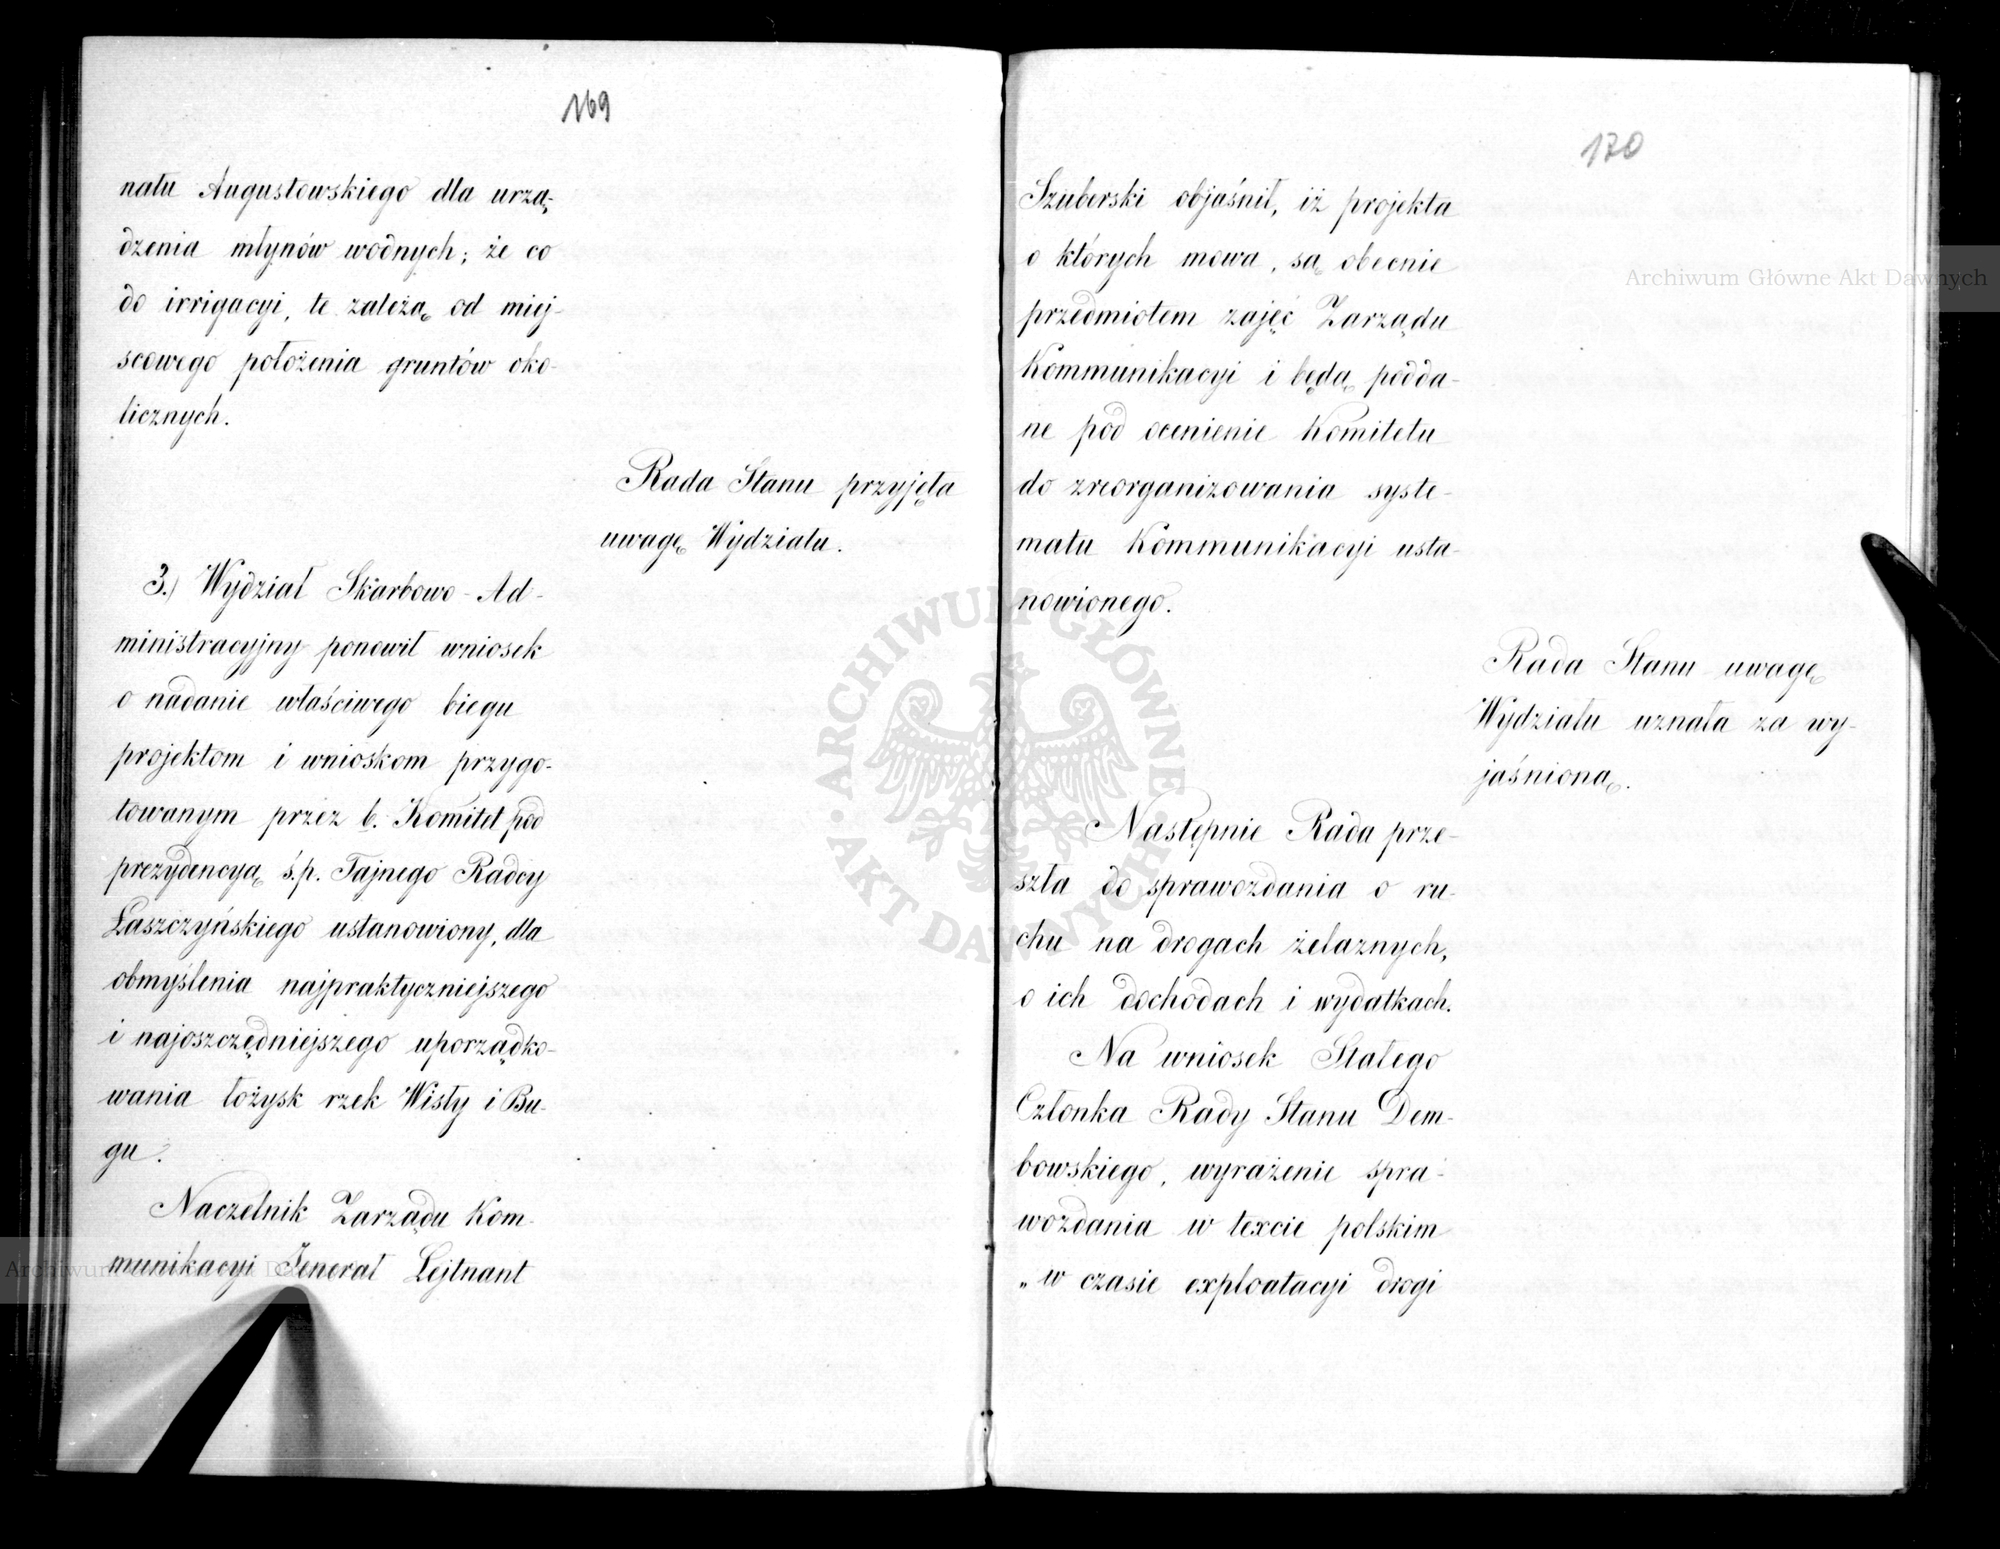 169
natu Augustowskiego dla urzą-
dzenia młynów wodnych; że co
do irrigacyi, te zależą od miej-
scowego położenia gruntów oko-
licznych.
Rada Stanu przyjęła
uwagę Wydziału.
3.) Wydział Skarbowo-Ad-
ministracyjny ponowił wniosek
o nadanie właściwego biegu
projektom i wnioskom przygo-
towanym przez b. Komitet pod
prezydencyą ś.p. Tajnego Radcy
Łaszczyńskiego ustanowiony, dla
obmyślenia najpraktyczniejszego
i najoszczędniejszego uporządko-
wania łożysk rzek Wisły i Bu-
gu.
Naczelnik Zarządu Kom-
munikacyi Jenerał Lejtnant
170
Szuberski objaśnił, iż projekta
o których mowa, są obecnie
przedmiotem zajęć Zarządu
Kommunikacyi i będą podda-
ne pod ocenienie Komitetu
do zreorganizowania syste-
matu Kommunikacyi usta-
nowionego.
Rada Stanu uwagę
Wydziału uznała za wy-
jaśnioną.
Następnie Rada prze-
szła do sprawozdania o ru-
chu na drogach żelaznych,
o ich dochodach i wydatkach.
Na wniosek Stałego
Członka Rady Stanu Dem-
bowskiego, wyrażenie spra-
wozdania w texcie polskim
„w czasie exploatacyi drogi
Archiwum Główne Akt Dawnych
ARCHIWUM GŁÓWNE AKT DAWNYCH